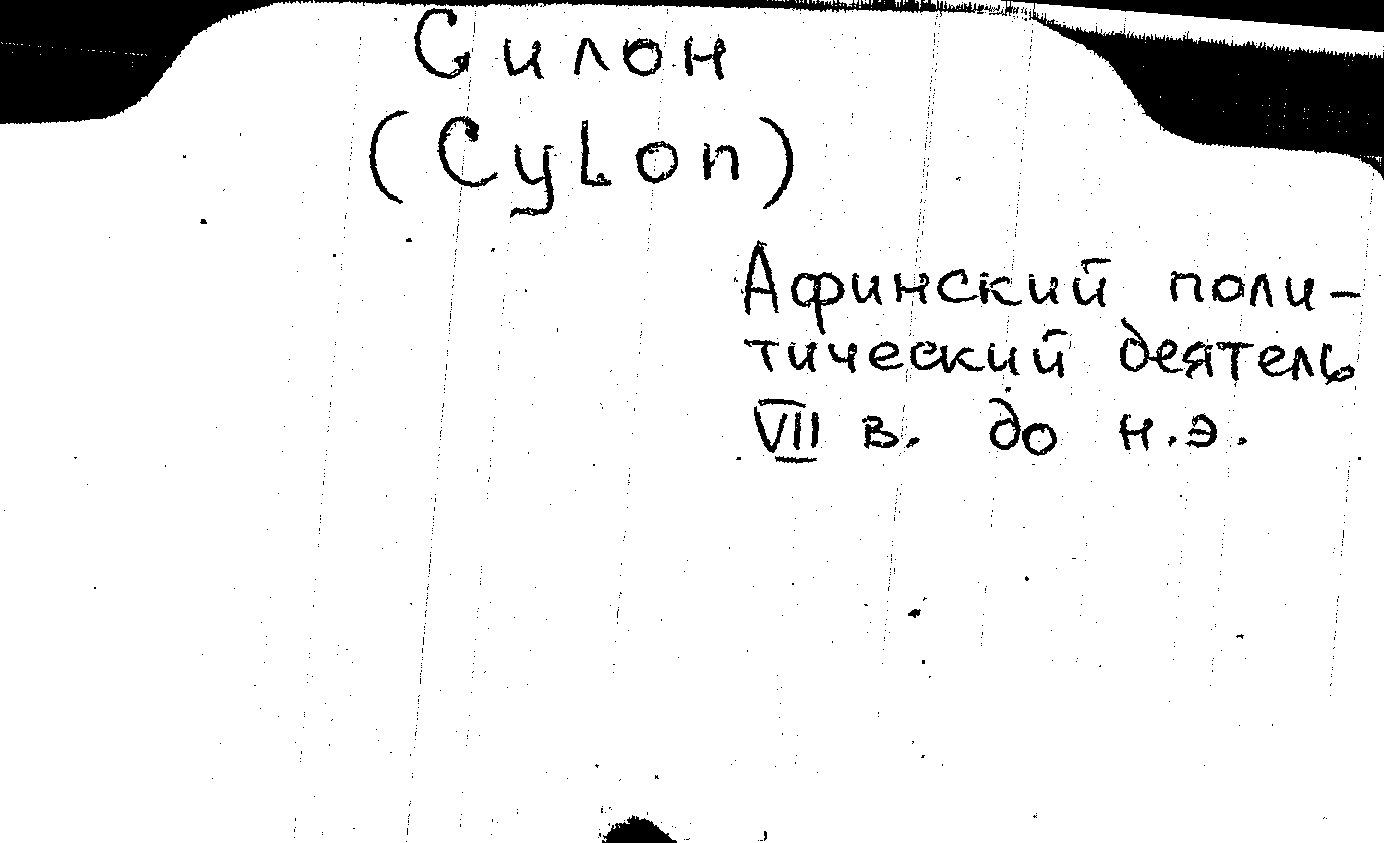 Силон
(Cylon)
Афинский поли-
тический деятель
VII в. до н.э.